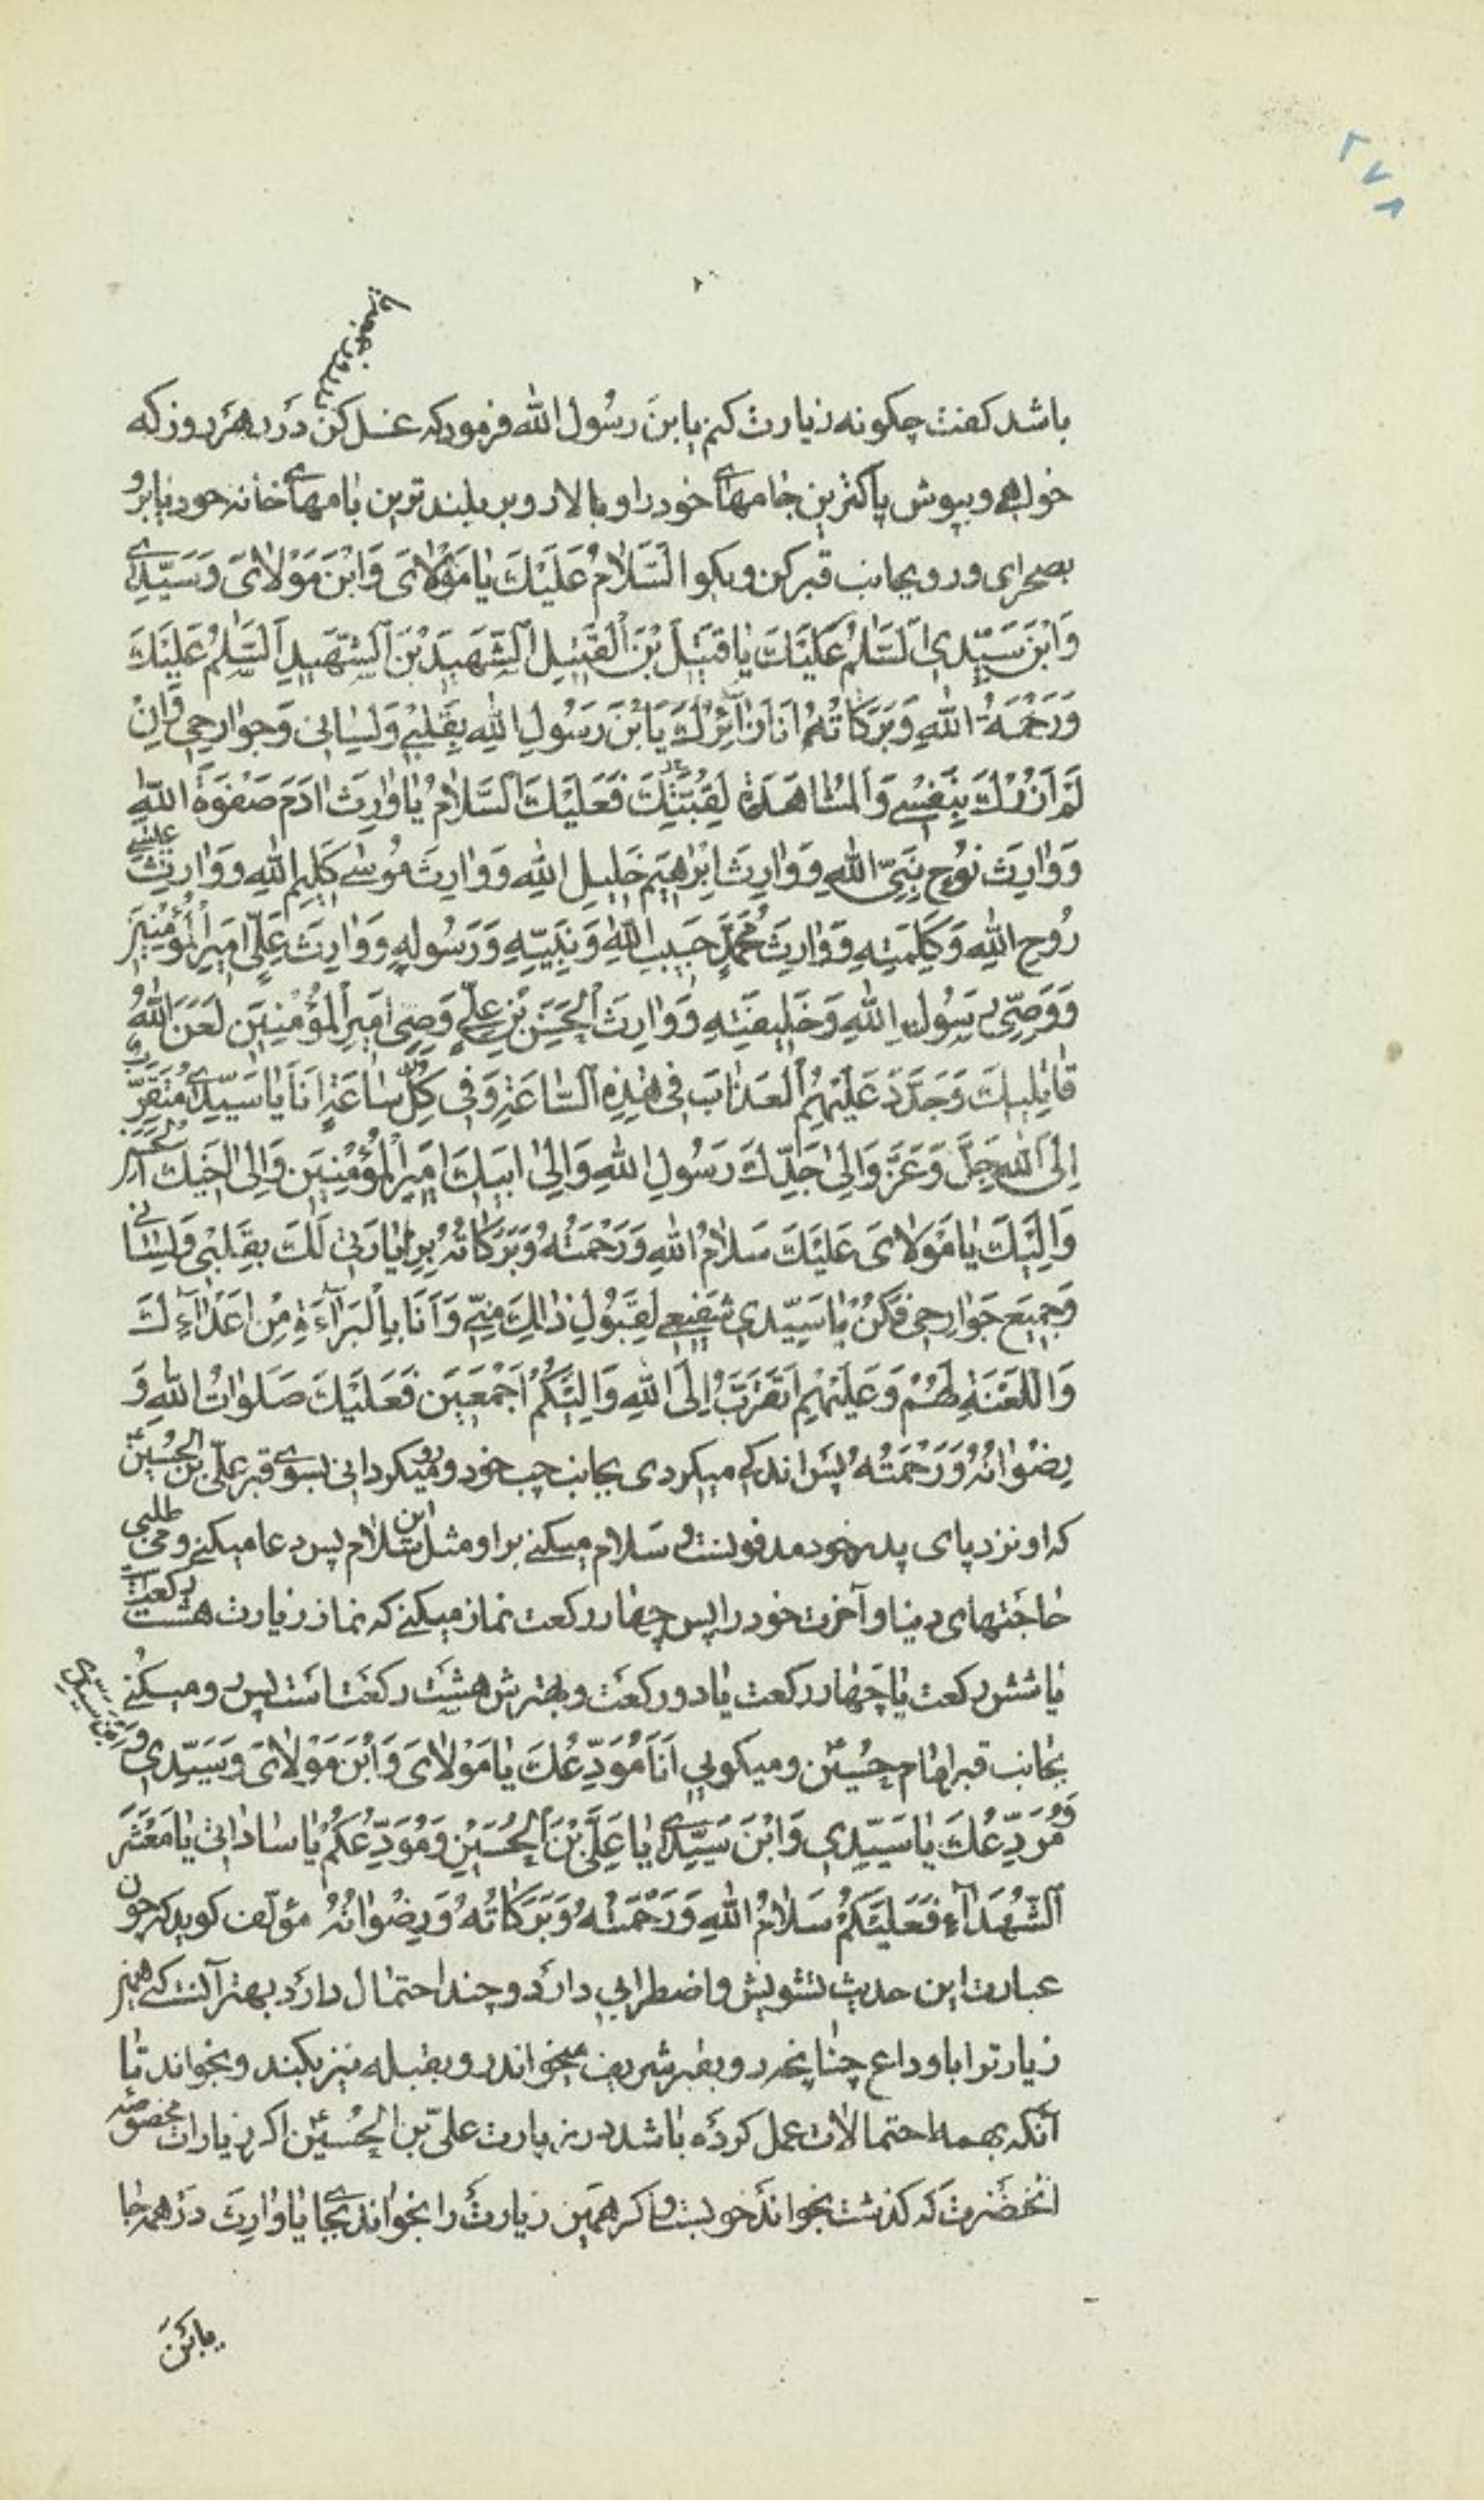 ۲۷۸
در روز جمعه یا
باشد کفت چکونه زیارت کنم یابن رسول الله فرمود که غسل کن در هر روز که
خواهی و بپوش پاکترین جامهای خود را و بالا رو بر بلند ترین بامهای خانه خود یا برو
بصحرای و رو بجانب قبر کن و بکو اَلسَّلامُ عَلَیْكَ یا مَوْلایَ وَابْنَ مَوْلایَ وَسَیِّدی
وَابْنَ سَیِّدی اَلسَّلامُ عَلَیْكَ یا قَتیلَ بْنَ الْقَتیلِ الشَّهیدَ بْنَ الشَّهیدِ اَلسَّلامُ عَلَیْكَ
وَرَحْمَةُ اللهِ وَبَرَکاتُهُ اَنَا زائِرُكَ یَابْنَ رَسُولِ اللهِ بِقَلْبی وَلِسانی وَجَوارِحی وَاِنْ
لَمْ اَزُرْكَ بِنَفْسی وَالْمُشاهَدَةِ لِقُبَّتِكَ فَعَلَیْكَ السَّلامُ یا وارِثَ ادَمَ صَفْوَةِ اللهِ
وَوارِثَ نُوحٍ نَبِیِّ اللهِ وَوارِثَ اِبْراهیمَ خَلیلِ اللهِ وَوارِثَ مُوسی کَلیمِ اللهِ وَوارِثَ عیسی
رُوحِ اللهِ وَکَلِمَتِهِ وَوارِثَ مُحَمَّدٍ حَبیبِ اللهِ وَنَبِیِّهِ وَرَسُولِهِ وَوارِثَ عَلِیٍّ اَمیرِ الْمُؤْمِنینَ
وَوَصِیِّ رَسُولِ اللهِ وَخَلیفَتِهِ وَوارِثَ الْحَسَنِ بْنِ عَلِیٍّ وَصِیِّ اَمیرِ الْمُؤْمِنینَ لَعَنَ اللهُ
قاتِلیكَ وَجَدَّدَ عَلَیْهِمُ الْعَذابَ فی هٰذِهِ السّاعَةِ وَفی کُلِّ ساعَةٍ اَنَا یا سَیِّدی مُتَقَرِّبٌ
اِلَی اللهِ جَلَّ وَعَزَّ وَاِلی جَدِّكَ رَسُولِ اللهِ وَاِلی اَبیكَ اَمیرِ الْمُؤْمِنینَ وَاِلی اَخیكَ الْحَسَنِ
وَاِلَیْكَ یا مَوْلایَ عَلَیْكَ سَلامُ اللهِ وَرَحْمَتُهُ وَبَرَکاتُهُ بِزِیارَتی لَكَ بِقَلْبی وَلِسانی
وَجَمیعِ جَوارِحی فَکُنْ یا سَیِّدی شَفیعی لِقَبُولِ ذٰلِكَ مِنّی وَاَنَا بِالْبَرآءَةِ مِنْ اَعْدآءِكَ
وَاللَّعْنَةِ لَهُمْ وَعَلَیْهِمْ اَتَقَرَّبُ اِلَی اللهِ وَاِلَیْکُمْ اَجْمَعینَ فَعَلَیْكَ صَلَواتُ اللهِ وَ
رِضْوانُهُ وَرَحْمَتُهُ پس اندکی میکردی بجانب چپ خود و رو میکردانی بسوی قبر علی بن الحسین ع
که او نزد پای پدر خود مدفونست و سلام میکنی بر او مثل این سلام پس دعا میکنی و می طلبی
حاجتهای دنیا و آخرت خود را پس چهار رکعت نماز میکنی که نماز زیارت هشت رکعت است
یا شش رکعت یا چهار رکعت یا دو رکعت و بهترش هشت رکعت است پس رو میکنی
بجانب قبر امام حسین ع و میکویی اَنَا مُوَدِّعُكَ یا مَوْلایَ وَابْنَ مَوْلایَ وَسَیِّدی وَابْنَ سَیِّدی
وَمُوَدِّعُكَ یا سَیِّدی وَابْنَ سَیِّدی یا عَلِیَّ بْنَ الْحُسَیْنِ وَمُوَدِّعُکُمْ یا ساداتی یا مَعْشَرَ
الشُّهَدآءِ فَعَلَیْکُمْ سَلامُ اللهِ وَرَحْمَتُهُ وَبَرَکاتُهُ وَرِضْوانُهُ مؤلف کوید که چون
عبارت این حدیث تشویش و اضطرابی دارد و چند احتمال دارد بهتر آنست که همین
زیارترا با وداع چنانچه رو بقبر شریف میخواند رو بقبله نیز بکند و بخواند تا
آنکه بهمه احتمالات عمل کرده باشد در زیارت علی بن الحسین ع اکر زیارات مخصوصه
آنحضرت که کذشت بخواند خوبست و اکر همین زیارت را بخواند بجای یا وارث در همه جا
یابن